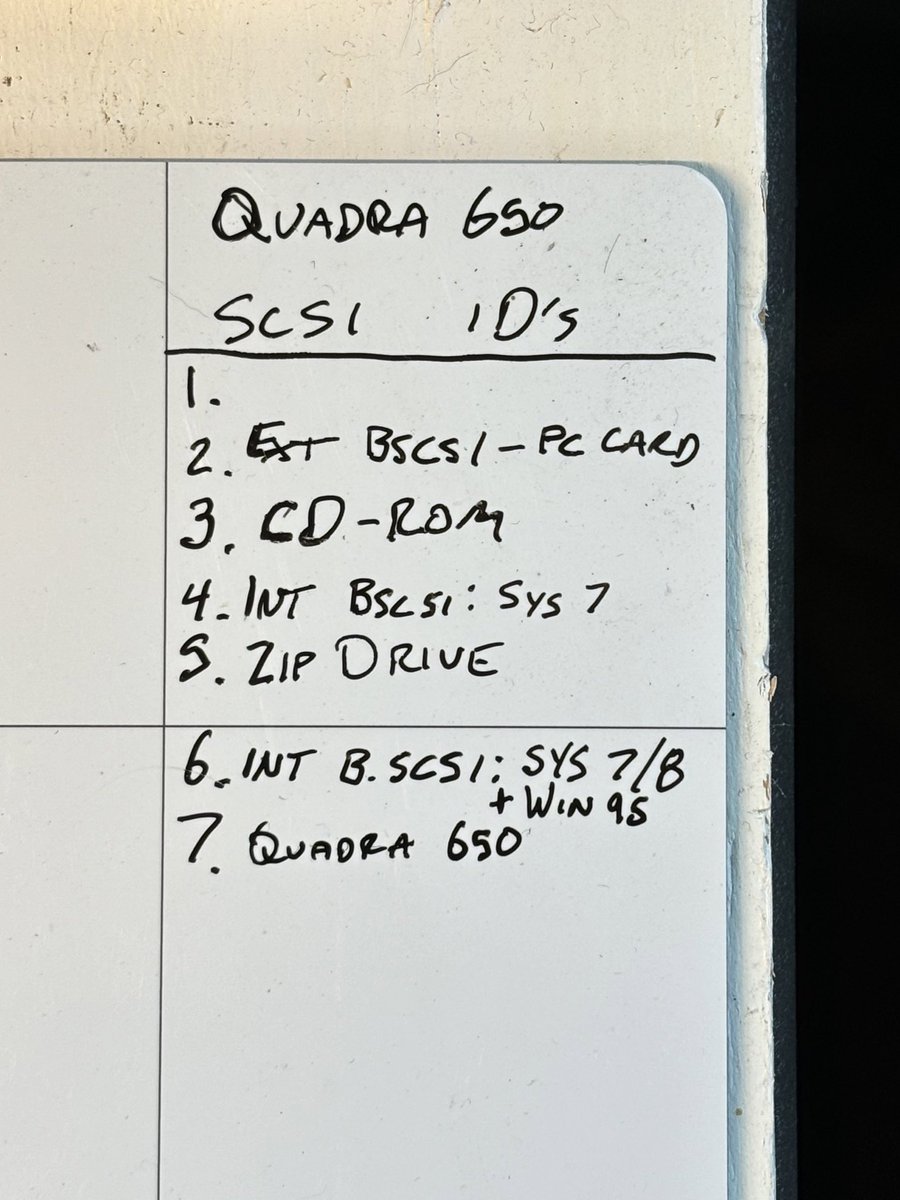 QUADRA 650
SCSI ID's
1.
2. EXT BSCSI - PC CARD
3. CD-ROM
4. INT BSCSI: SYS 7
5. ZIP DRIVE
6. INT B.SCSI: SYS 7/8
+ WIN 95
7. QUADRA 650